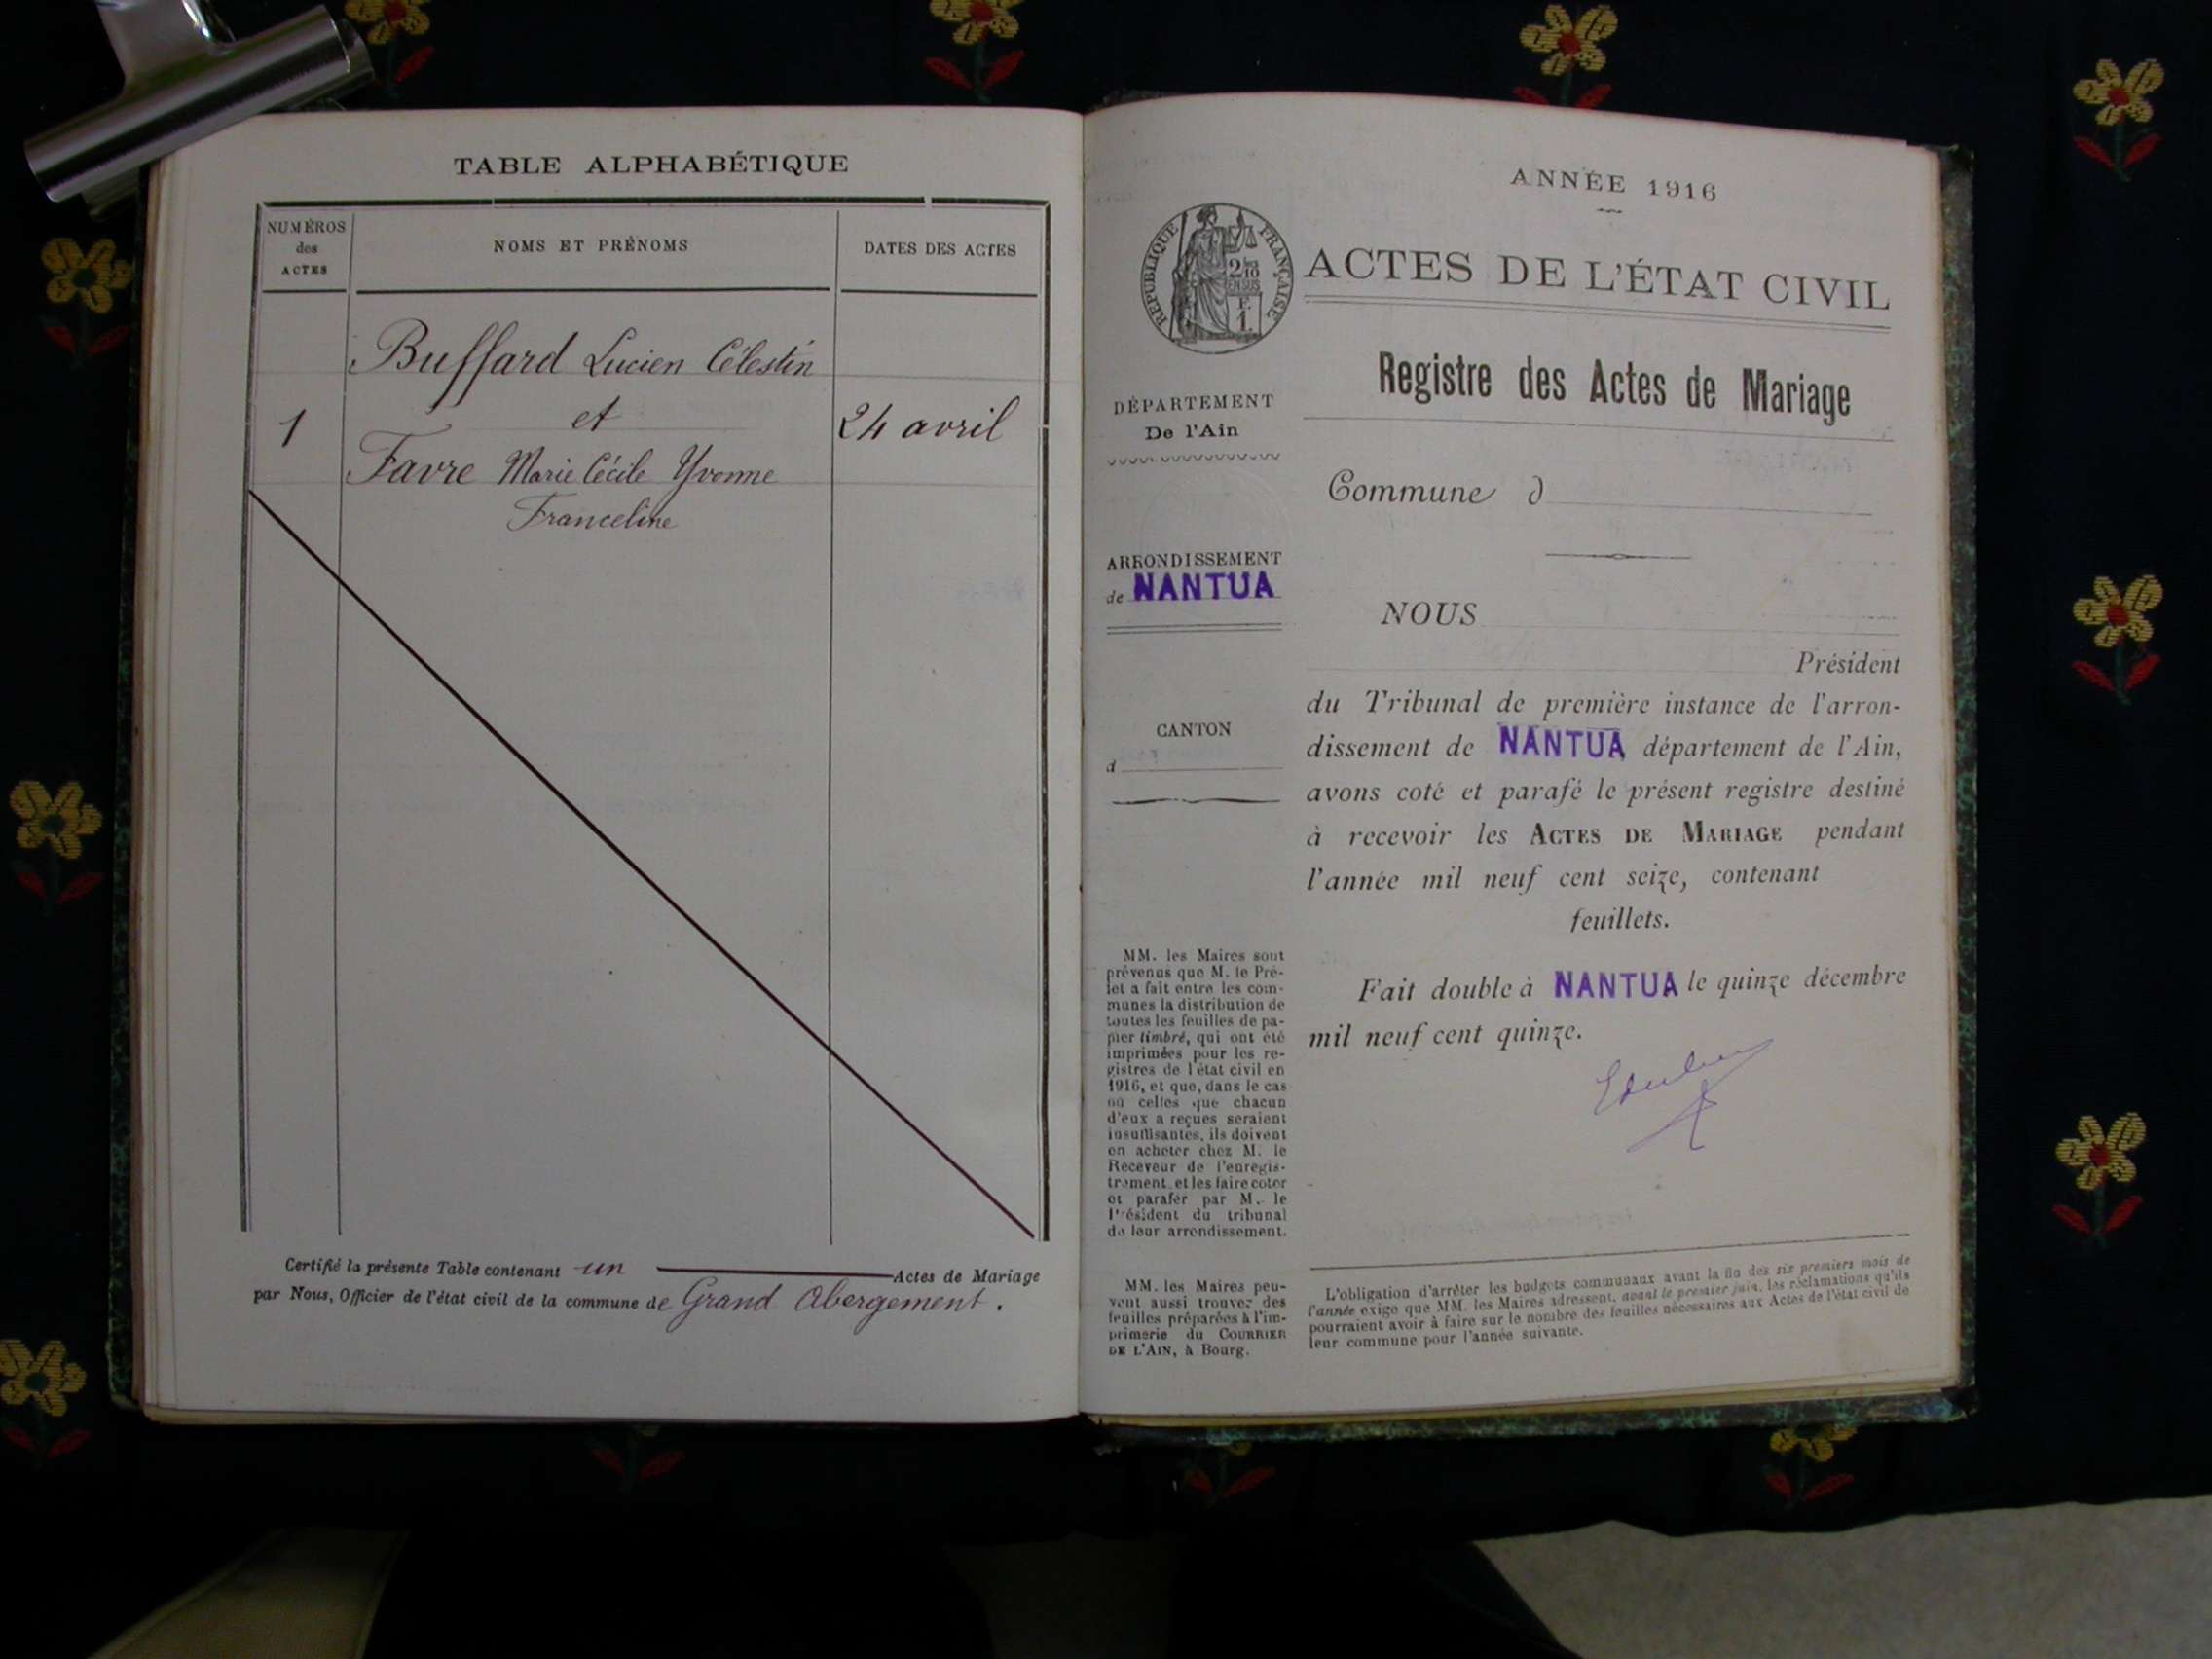 TABLE ALPHABÉTIQUE
NUMÉROS
des
ACTES
NOMS ET PRÉNOMS
DATES DES ACTES
Buffard Lucien Célestin
1
et
24 avril
Favre Marie Cécile Yvonne
Franceline
Certifié la présente Table contenant un Actes de Mariage
par Nous, Officier de l'état civil de la commune de Grand Abergement.
ANNÉE 1916
RÉPUBLIQUE FRANÇAISE
2/10
EN SUS
F.
1.
ACTES DE L'ÉTAT CIVIL
Registre des Actes de Mariage
DÉPARTEMENT
De l'Ain
Commune d
ARRONDISSEMENT
de NANTUA
CANTON
d
NOUS
Président
du Tribunal de première instance de l'arron-
dissement de NANTUA département de l'Ain,
avons coté et parafé le présent registre destiné
à recevoir les ACTES DE MARIAGE pendant
l'année mil neuf cent seize, contenant
feuillets.
Fait double à NANTUA le quinze décembre
mil neuf cent quinze.
MM. les Maires sont
prévenus que M. le Pré-
fet a fait entre les com-
munes la distribution de
toutes les feuilles de pa-
pier timbré, qui ont été
imprimées pour les re-
gistres de l'état civil en
1916, et que, dans le cas
où celles que chacun
d'eux a reçues seraient
insuffisantes, ils doivent
en acheter chez M. le
Receveur de l'enregis-
trement et les faire coter
et parafer par M. le
Président du tribunal
de leur arrondissement.
MM. les Maires peu-
vent aussi trouver des
feuilles préparées à l'im-
primerie du COURRIER
DE L'AIN, à Bourg.
L'obligation d'arrêter les budgets communaux avant la fin des six premiers mois de
l'année exige que MM. les Maires adressent, avant le premier juin, les réclamations qu'ils
pourraient avoir à faire sur le nombre des feuilles nécessaires aux Actes de l'état civil de
leur commune pour l'année suivante.